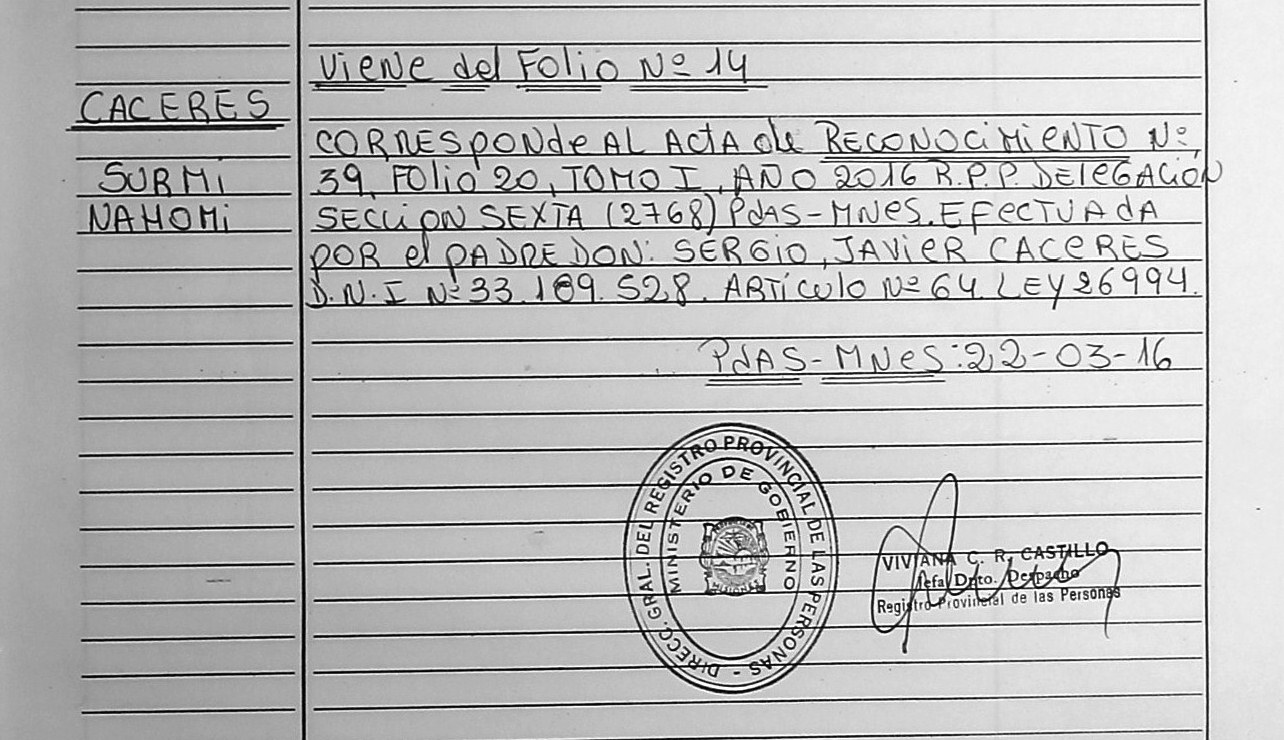 Viene del Folio Nº 14
CACERES
SURMI
NAHOMI
CORRESponde AL Acta de RECONOCIMIENTO Nº
39, Folio 20, TOMO I, AÑO 2016 R.P.P. DELEGACIÓN
SECCION SEXTA (2768) PdAS-MNES. EFECTUADA
POR el PADRE DON: SERGIO, JAVIER CACERES
D.N.I Nº 33.189.528. ARTÍCULO Nº 64. LEY 26994.
PdAS-MNES: 22-03-16
DIRECC. GRAL. DEL REGISTRO PROVINCIAL DE LAS PERSONAS -
MINISTERIO DE GOBIERNO
MISIONES
VIVIANA C. R. CASTILLO
Jefa Dpto. Despacho
Registro Provincial de las Personas